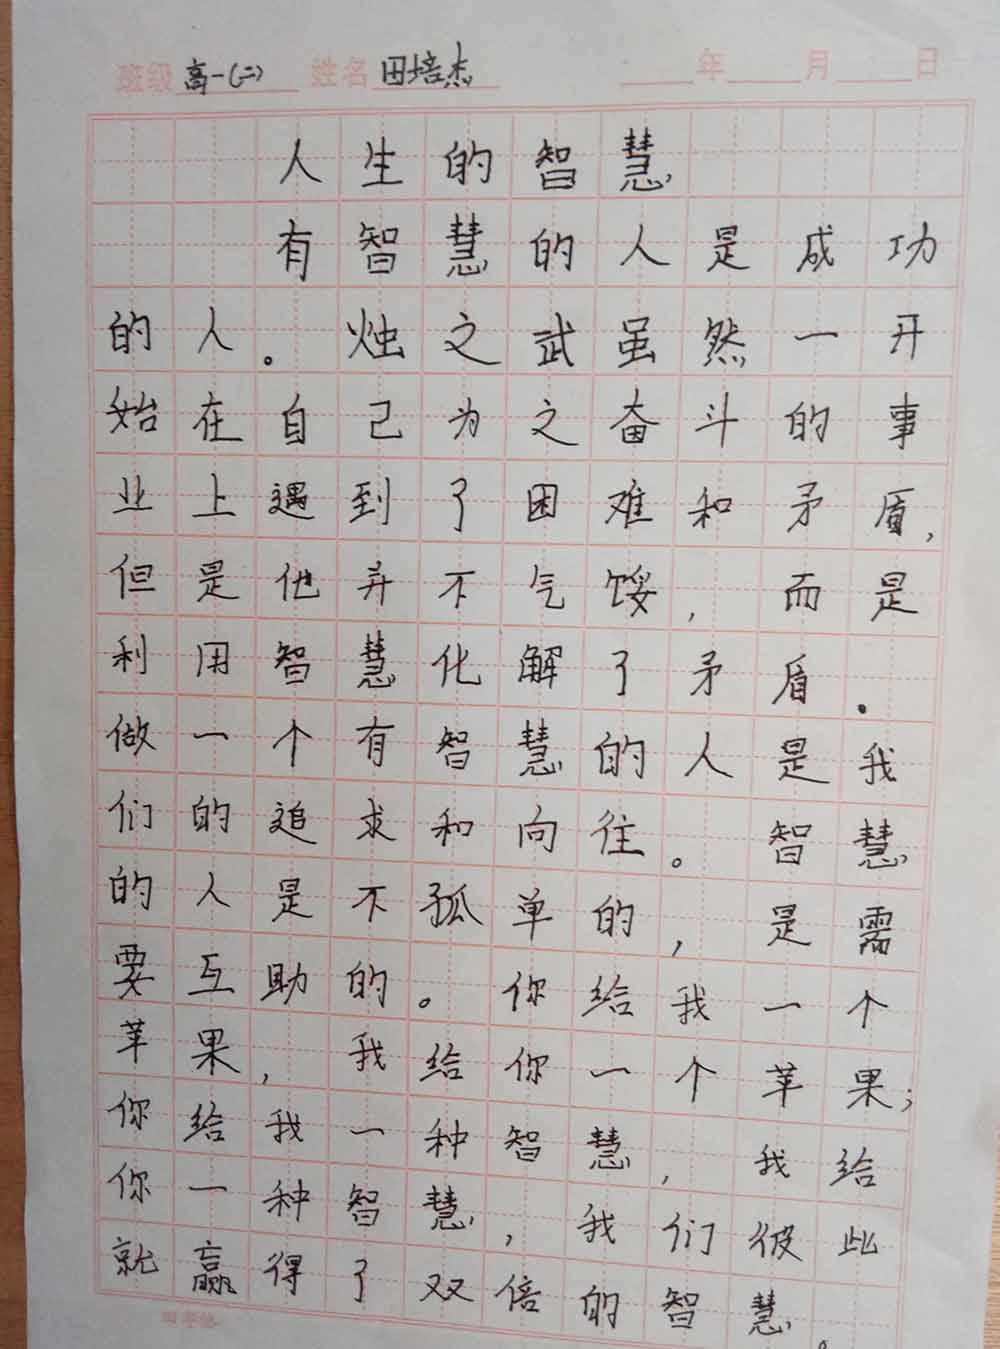 班级 高一(二) 姓名 田培杰 年 月 日
人生的智慧
有智慧的人是成功
的人。烛之武虽然一开
始在自己为之奋斗的事
业上遇到了困难和矛盾,
但是他并不气馁,而是
利用智慧化解了矛盾.
做一个有智慧的人是我
们的追求和向往。智慧
的人是不孤单的,是需
要互助的。你给我一个
苹果,我给你一个苹果;
你给我一种智慧,我给
你一种智慧,我们彼此
就赢得了双倍的智慧。